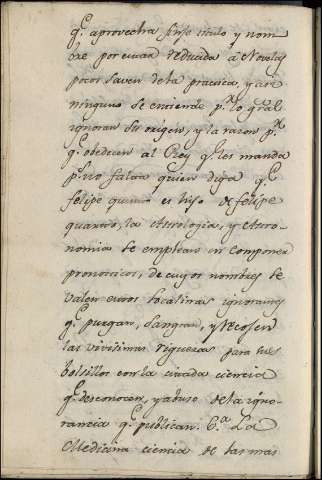 q.e aprovecha solo titulo y nom-
bre por estar reducida à Novelas
pocos saven dela practica, y casi
ninguno se entiende p.r lo gral
ignoran su origen, y la razon p.r
q.e obedecen al Rey q.e les manda
p.s no falta quien diga q.e
felipe quinto es hijo de felipe
quarto, la Astrologia, y Astro-
nomia se emplean en componer
pronosticos, de cuyos nombres se
valen estos locatinas ignorantes
q.e purgan, sangran, y recojen
las vivisimas riquezas para sus
bolsillos con la citada ciencia
q.e desconocen, y abuso dela igno-
rancia q.e publican. 6.a La
Medicina ciencia de las mas